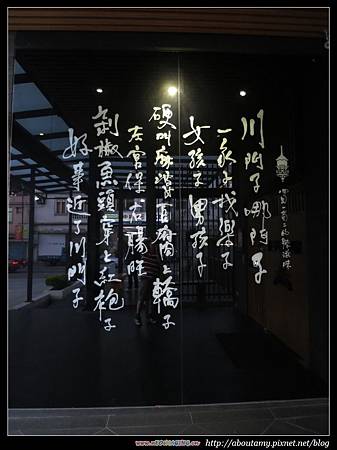 川門子哪門子
一家子找樂子
女孩子男孩子
硬叫麻婆豆腐上轎子
左宮保右腸旺
剁椒魚頭穿上紅袍子
好事近了川門子
http://aboutamy.pixnet.net/blog